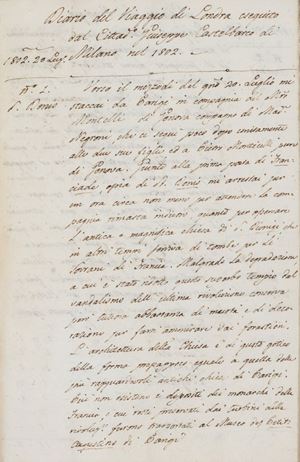 Diario del Viaggio di Londra eseguito
dal Cittad.º Giuseppe Castelbarco di
Milano nel 1802.
1802. 20 Lug.
nº. 1.
S. Denis
Verso il mezzodì del giorno 20. Luglio mi
staccai da Parigi in compagnia del
Monticelli di Genova compagno di Mad.
Negroni, che ci seguì poco dopo unitamente
alle due sue figlie ed a Pietro Monticelli pure
di Genova. Giunto alla prima posta di Fran-
ciade, ossia di St. Denis, mi arrestai per
un ora circa non meno per attender la com-
pagnia rimasta indietro quanto per osservare
l'antica e magnifica chiesa di S. Dionigi che
in altri tempi serviva di tomba per li
Sovrani di Francia. Malgrado la degradazione
a cui è stato ridotto questo superbo tempio dal
vandalismo dell'ultima rivoluzione conserva
però tuttora abbastanza di maestà e di deco-
razione per farsi ammirare dai forastieri.
L'architettura della Chiesa è di gusto gotico
della forma appresso eguale a quella delle
più ragguardevoli antiche chiese di Parigi.
Qui non esistono i depositi dei monarchi della
Francia, e cui resti preservati dai furori della
rivoluz. furono trasportati al Museo des Petits
Augustins di Parigi